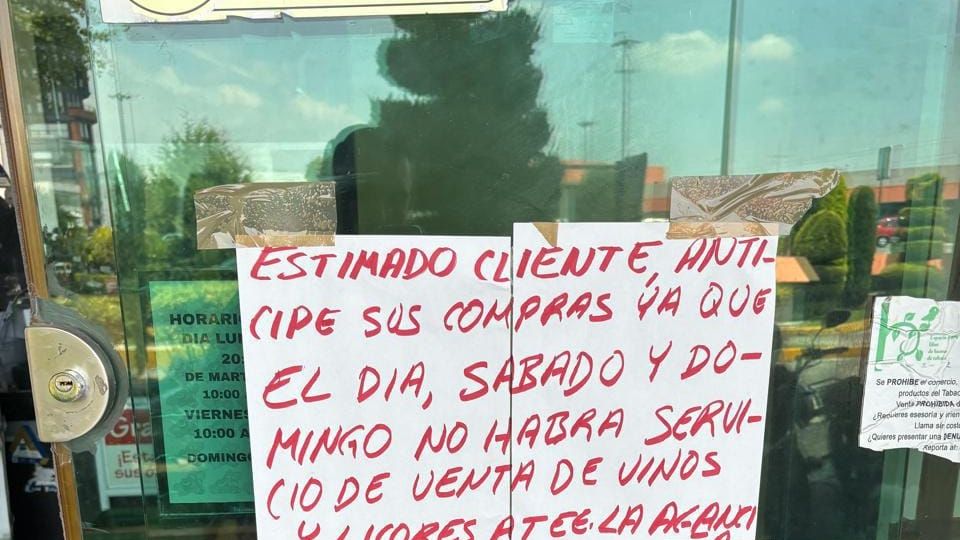 ESTIMADO CLIENTE, ANTI-
CIPE SUS COMPRAS YA QUE
EL DIA, SABADO Y DO-
MINGO NO HABRA SERVI-
CIO DE VENTA DE VINOS
Y LICORES ATEE. LA AGENCI
HORARI
DIA LUN
20:
DE MART
10:00
VIERNES
10:00 A
DOMINGO
Gra
¡Est
sus
Espacio
libre
de humo
de tabaco
Se PROHIBE el comercio,
productos del Tabac
Venta PROHIBIDA d
¿Requieres asesoría y orien
Llama sin cost
¿Quieres presentar una DENU
Reporta al: